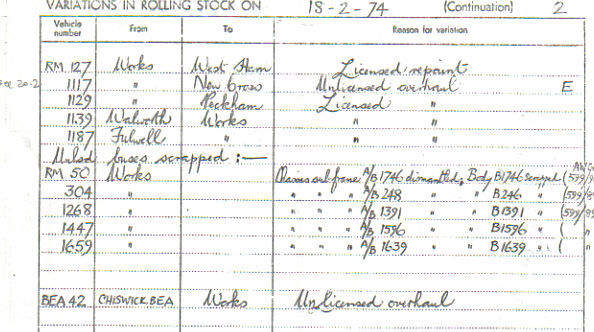 VARIATIONS IN ROLLING STOCK ON 18-2-74 (Continuation) 2
Vehicle number From To Reason for variation
RM 127 Works West Ham Licensed repaint
1117 " New Cross Unlicensed overhaul E
1129 " Peckham Licensed "
1139 Walworth Works " "
1187 Fulwell " " "
Unlsd buses scrapped :—
RM 50 Works Chassis sub frame A/B 1746 dismantled, Body B1746 scrapped (599/
304 " " " " A/B 248 " " B246 " (599/
1268 " " " " A/B 1391 " " B1391 " (599/
1447 " " " " A/B 1596 " " B1596 " ( "
1659 " " " " A/B 1639 " " B1639 " ( "
BEA 42 CHISWICK.BEA Works Unlicensed overhaul